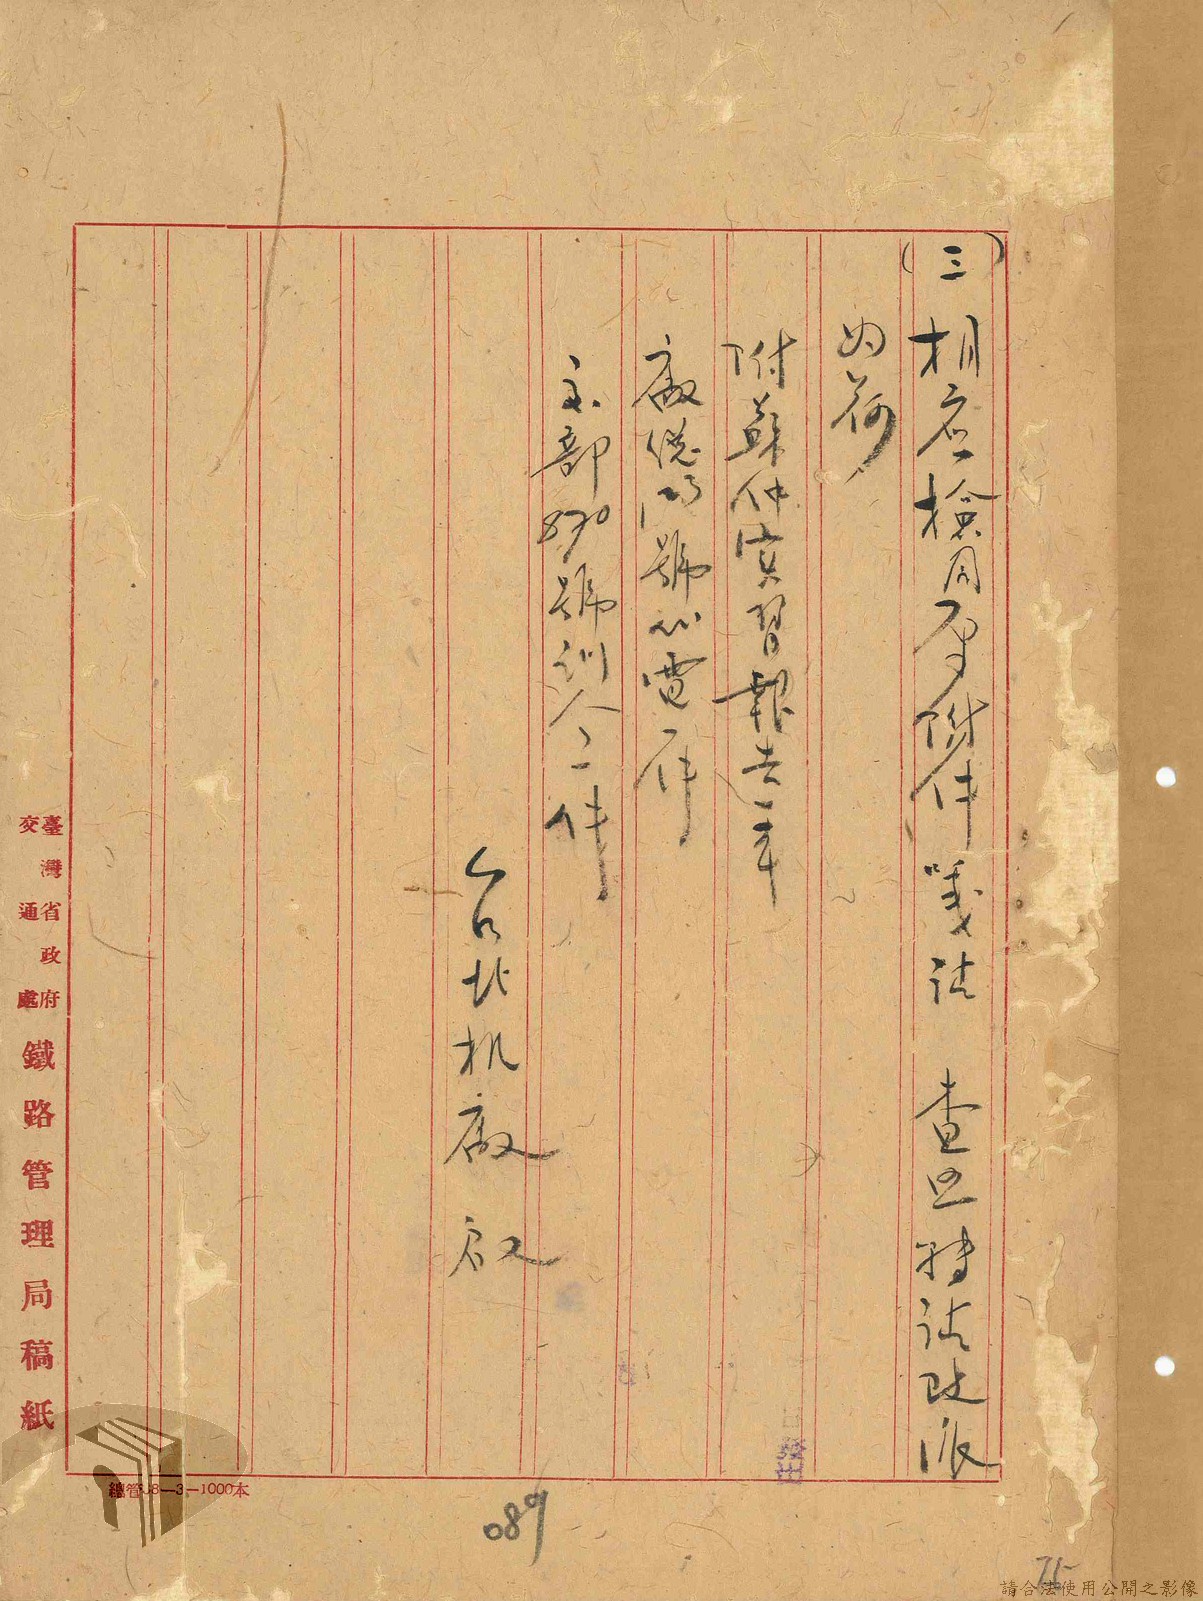 (三)相应檢同原附件箋請 查照轉請改派
为荷
附蘇仲實習報告一本
廠總 號代電一件
交部870號訓令一件
台北机廠啟
臺灣省政府
交通處
鐵路管理局稿紙
總管38—3—1000本
089
75
請合法使用公開之影像